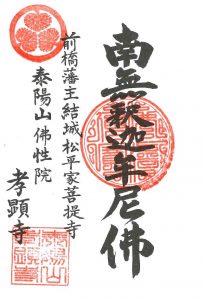 南無釈迦牟尼佛
前橋藩主結城松平家菩提寺
泰陽山佛性院
孝顕寺